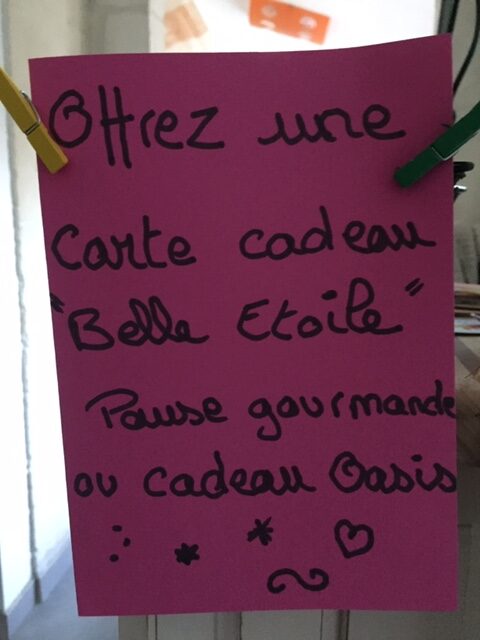 Offrez une
Carte cadeau
"Belle Etoile"
Pause gourmande
ou cadeau Oasis